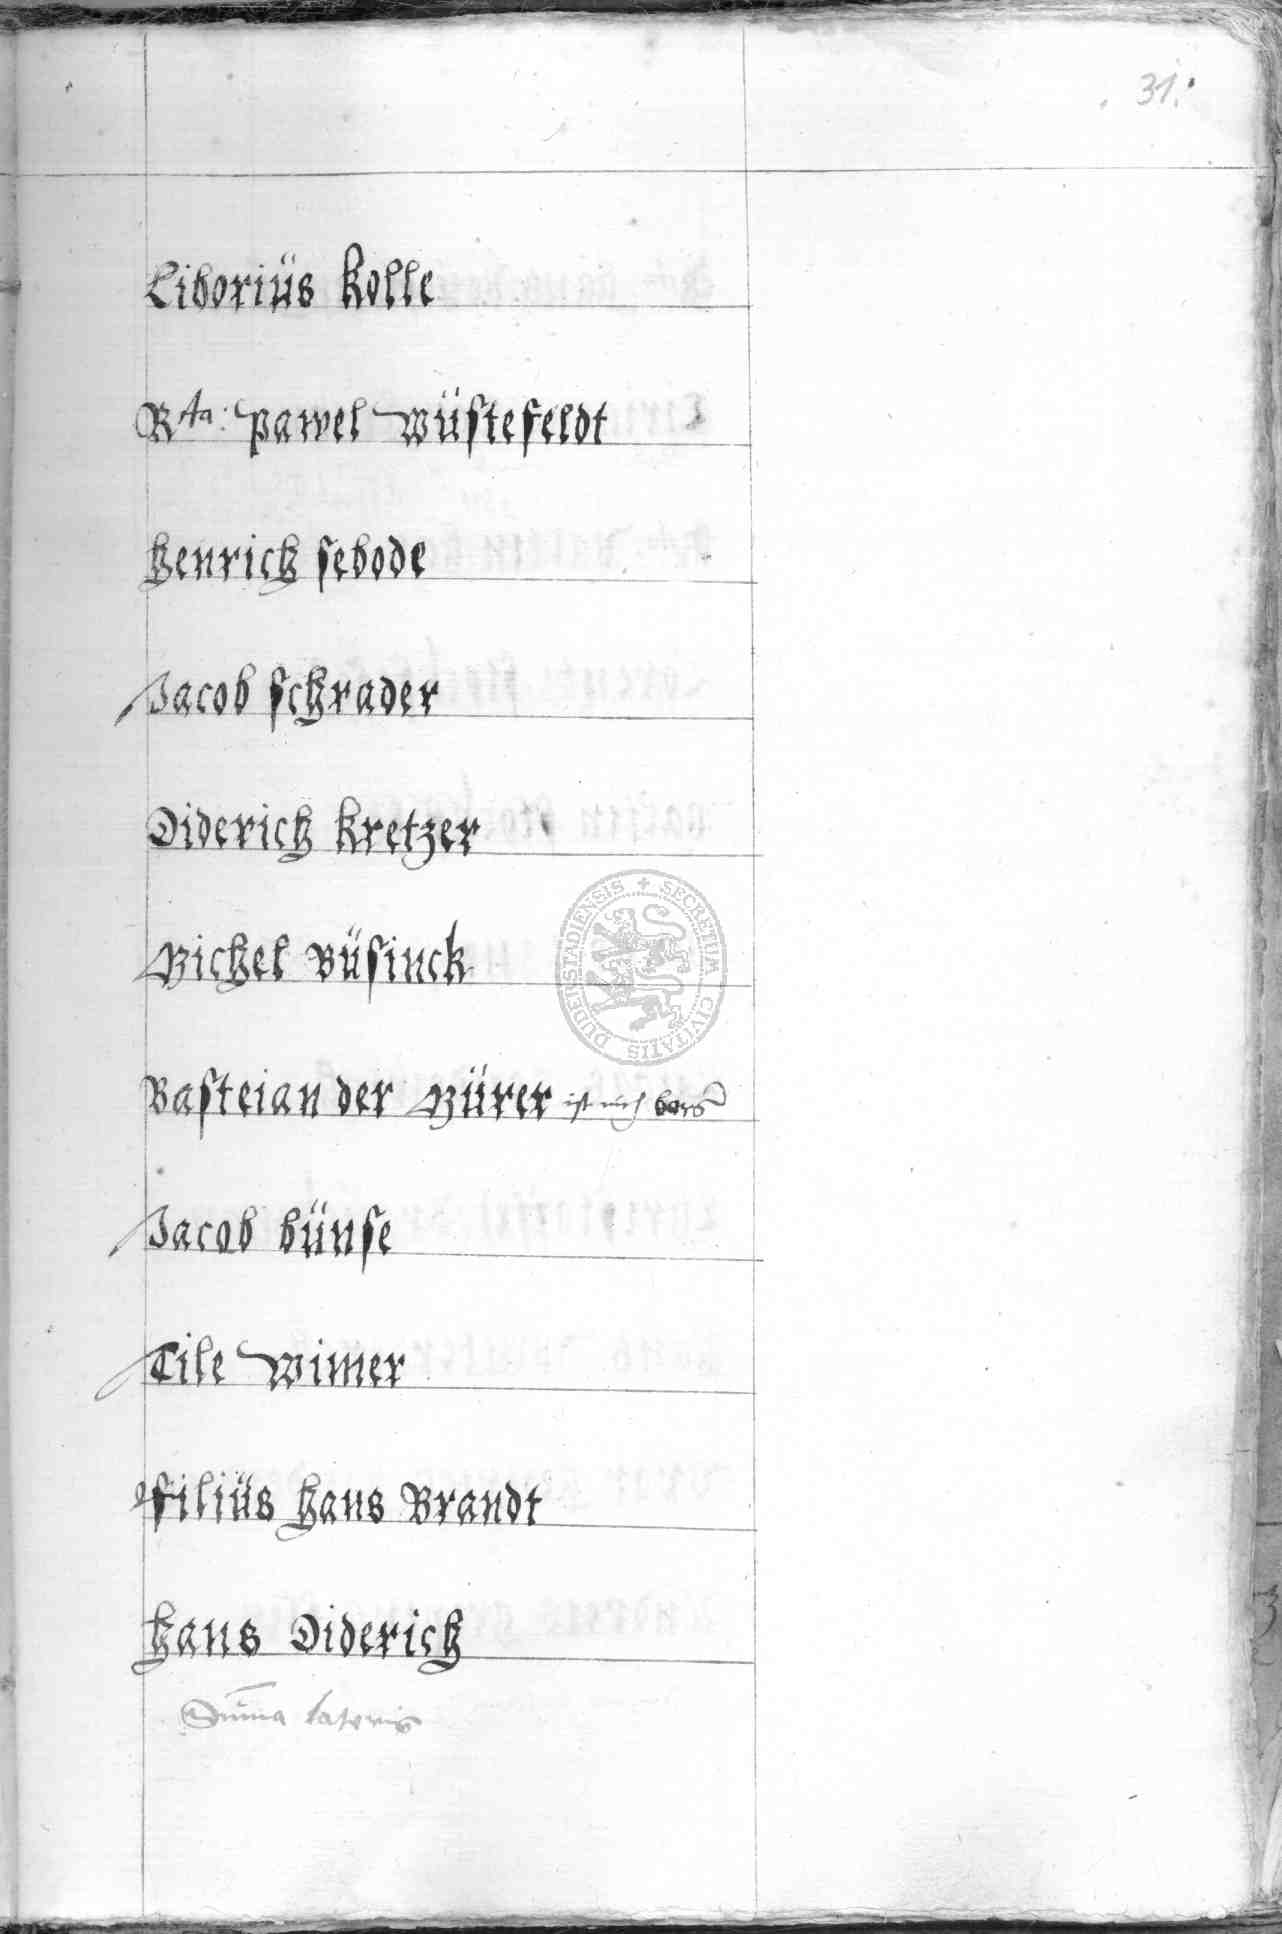 31.
Liborius Kolle
Rta: Pawel Wüstefeldt
Henrich Sebode
Jacob Schrader
Diderich Kretzer
Michel Büsinck
SECRETUM CIVITATIS DUDERSTADIENSIS
Basteian der Mürer ist
Jacob Bünse
Tile Wimer
Filiüs Hans Brandt
Hans Diderich
Summa lateris